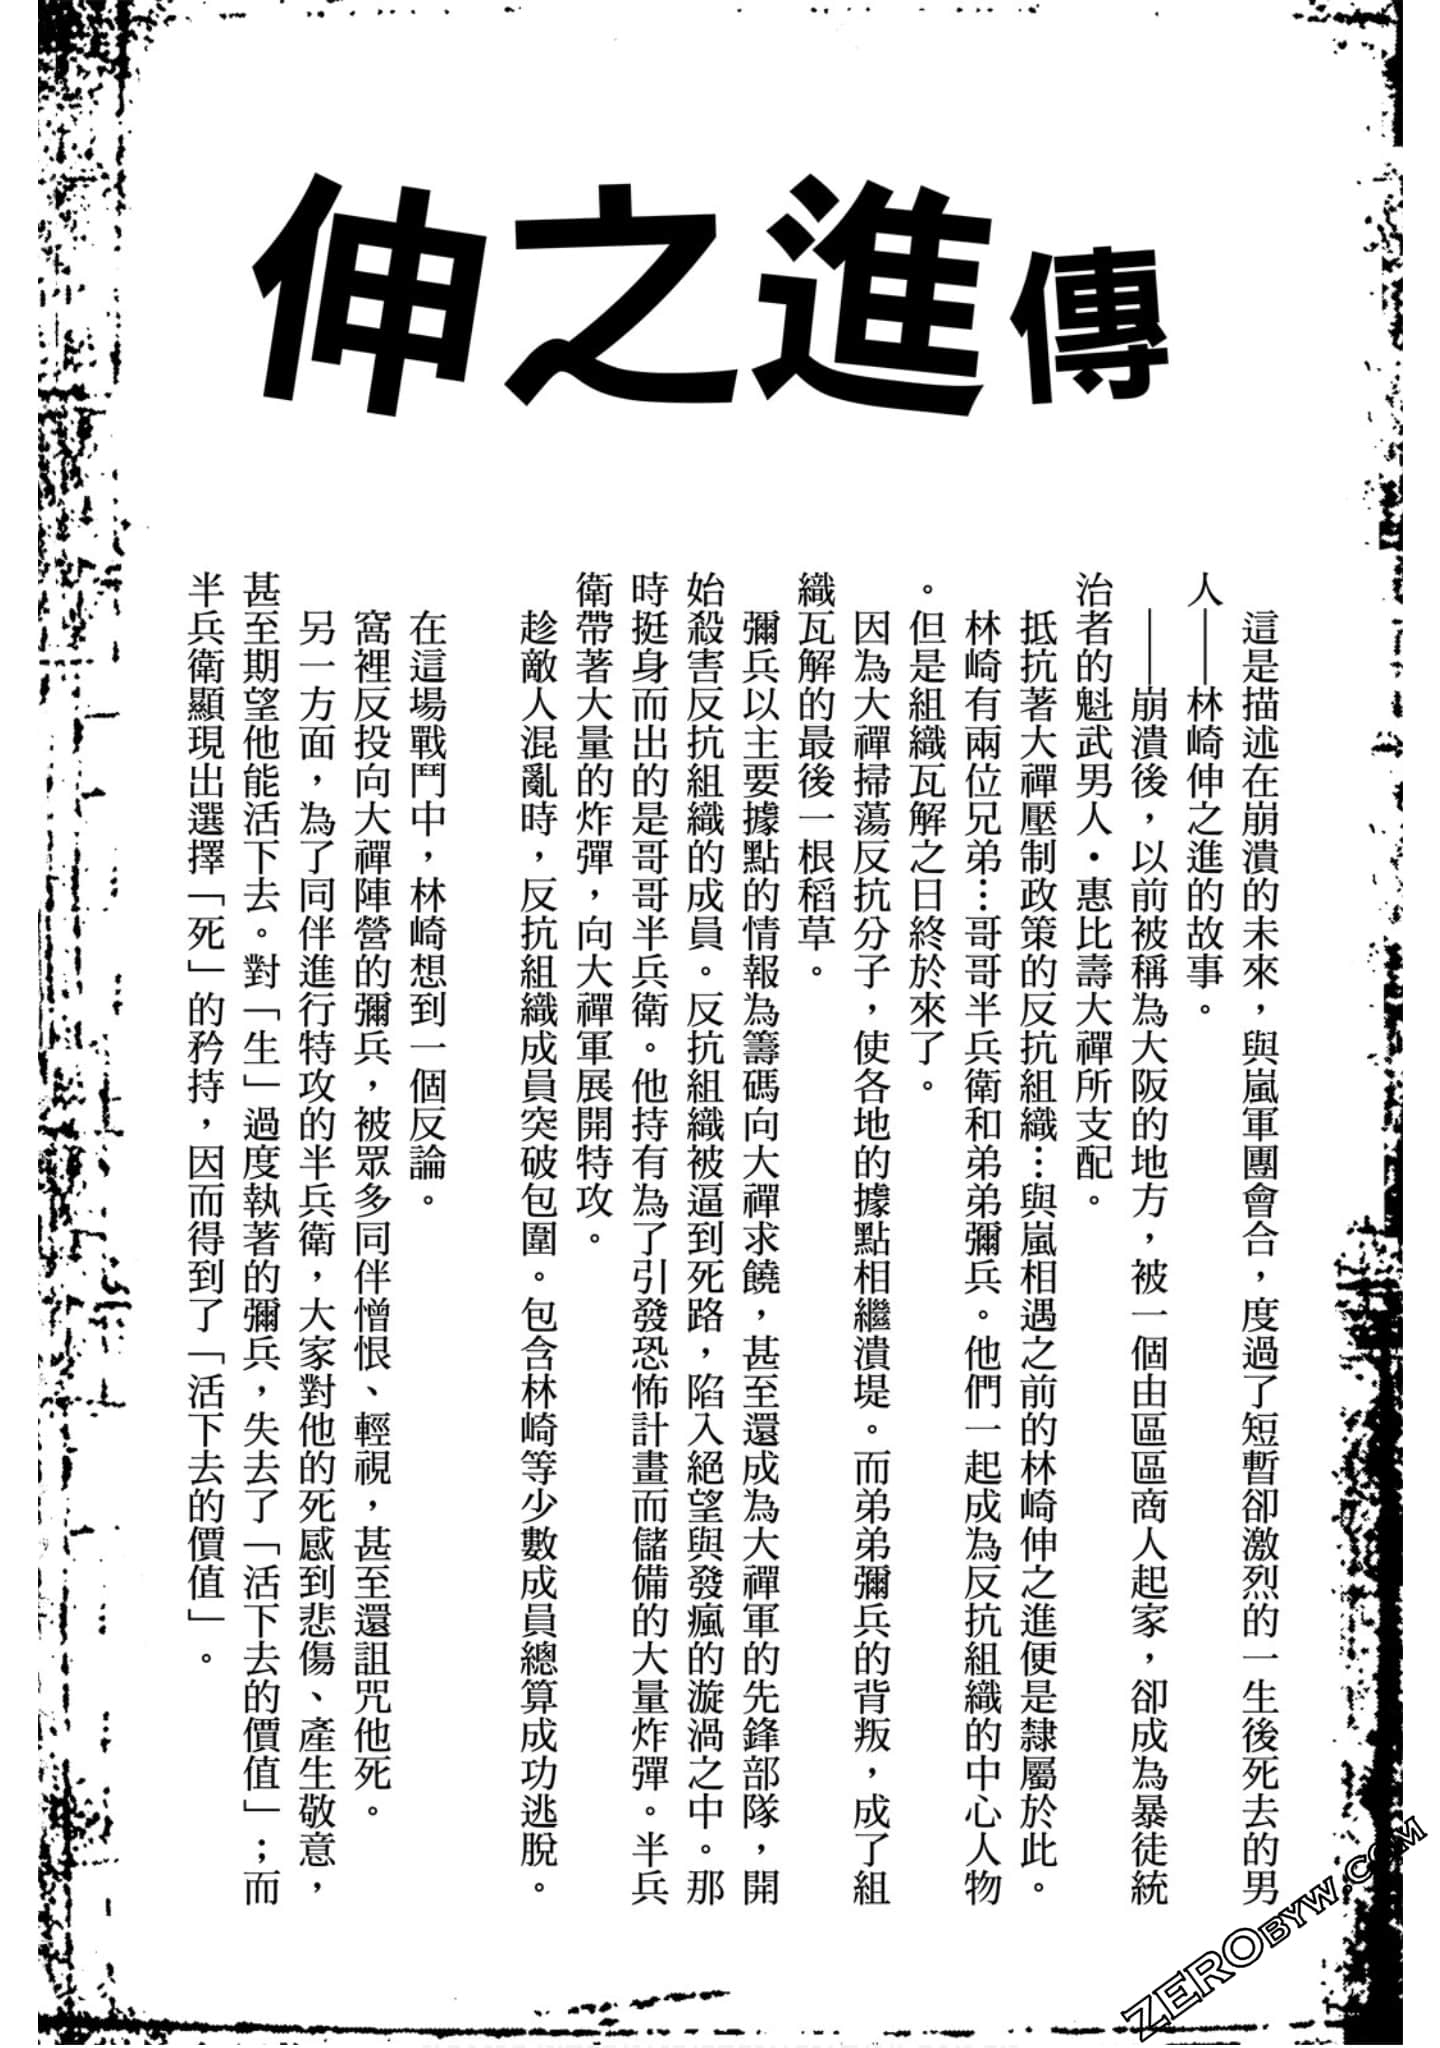 伸之進傳
這是描述在崩潰的未來，與嵐軍團會合，度過了短暫卻激烈的一生後死去的男
人——林崎伸之進的故事。
——崩潰後，以前被稱為大阪的地方，被一個由區區商人起家，卻成為暴徒統
治者的魁武男人・惠比壽大禪所支配。
抵抗著大禪壓制政策的反抗組織…與嵐相遇之前的林崎伸之進便是隸屬於此。
林崎有兩位兄弟…哥哥半兵衛和弟弟彌兵。他們一起成為反抗組織的中心人物
。但是組織瓦解之日終於來了。
因為大禪掃蕩反抗分子，使各地的據點相繼潰堤。而弟弟彌兵的背叛，成了組
織瓦解的最後一根稻草。
彌兵以主要據點的情報為籌碼向大禪求饒，甚至還成為大禪軍的先鋒部隊，開
始殺害反抗組織的成員。反抗組織被逼到死路，陷入絕望與發瘋的漩渦之中。那
時挺身而出的是哥哥半兵衛。他持有為了引發恐怖計畫而儲備的大量炸彈。半兵
衛帶著大量的炸彈，向大禪軍展開特攻。
趁敵人混亂時，反抗組織成員突破包圍。包含林崎等少數成員總算成功逃脫。
在這場戰鬥中，林崎想到一個反論。
窩裡反投向大禪陣營的彌兵，被眾多同伴憎恨、輕視，甚至還詛咒他死。
另一方面，為了同伴進行特攻的半兵衛，大家對他的死感到悲傷、產生敬意，
甚至期望他能活下去。對「生」過度執著的彌兵，失去了「活下去的價值」；而
半兵衛顯現出選擇「死」的矜持，因而得到了「活下去的價值」。
ZEROBYW.COM